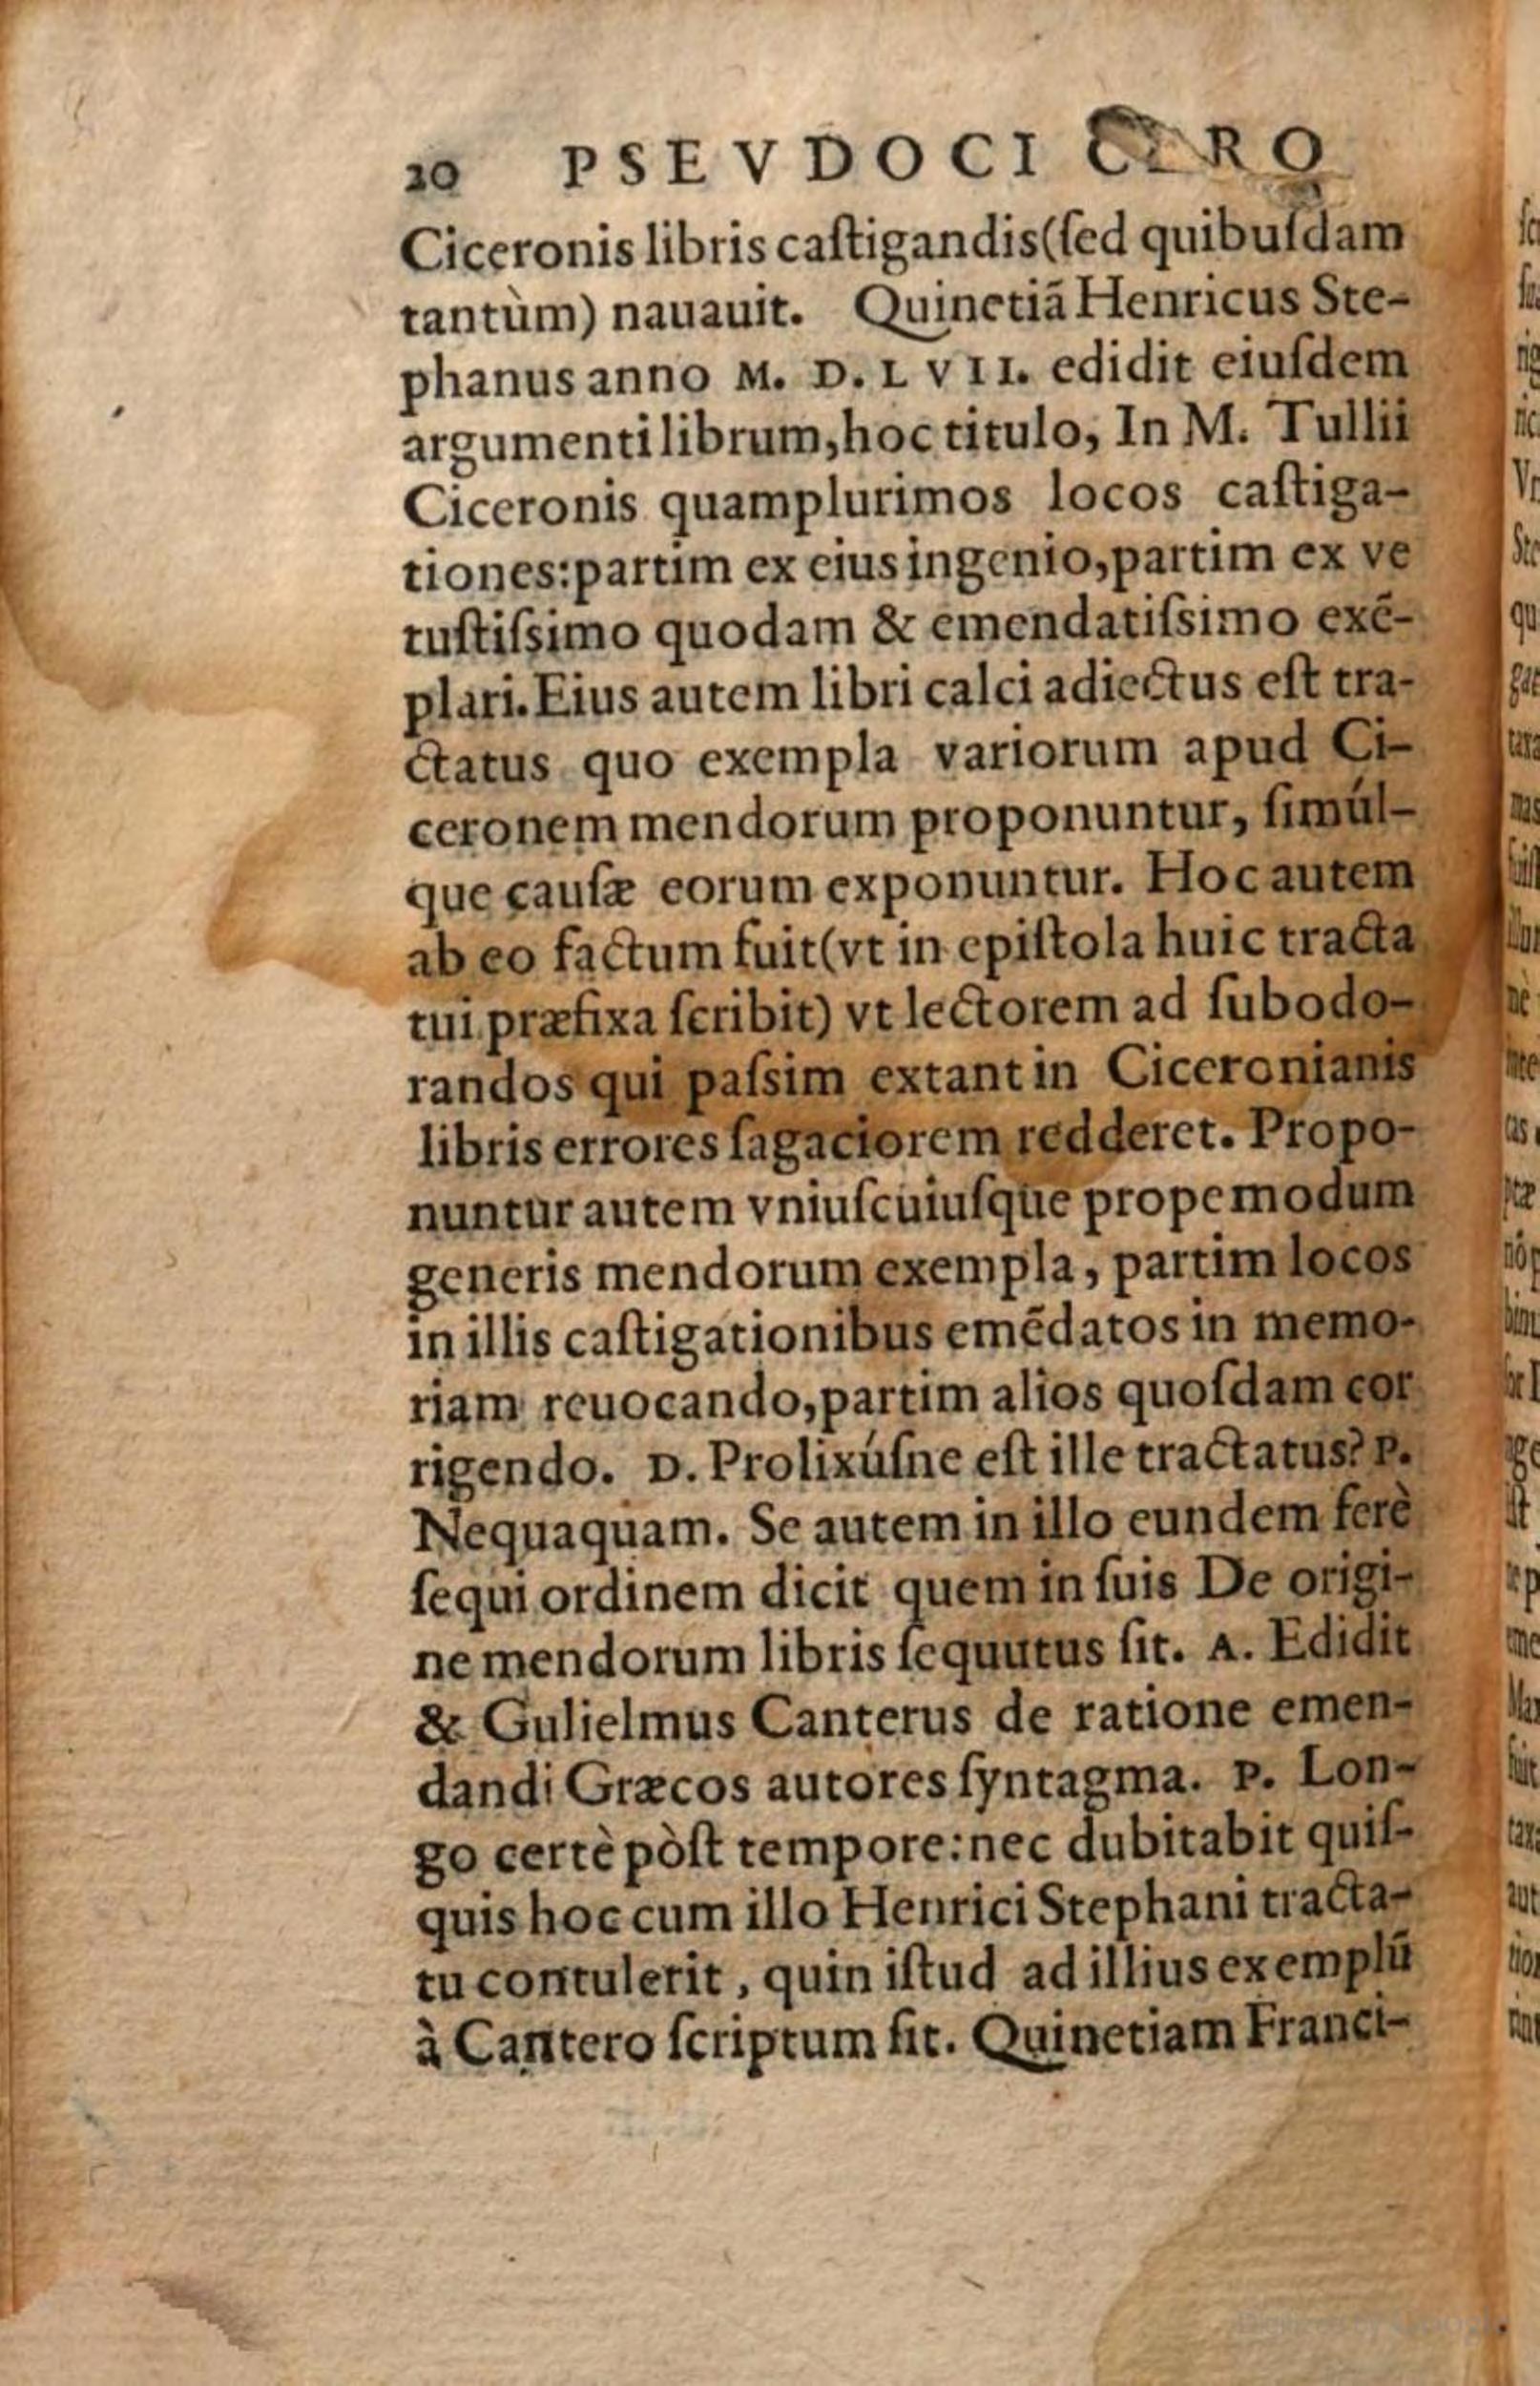 20 PSEVDOCICERO
Ciceronis libris caſtigandis(ſed quibuſdam
tantùm) nauauit. Quinetiã Henricus Ste-
phanus anno M. D. L VII. edidit eiuſdem
argumenti librum,hoc titulo, In M. Tullii
Ciceronis quamplurimos locos caſtiga-
tiones:partim ex eius ingenio,partim ex ve
tuſtiſsimo quodam & emendatiſsimo exẽ-
plari.Eius autem libri calci adiectus eſt tra-
ctatus quo exempla variorum apud Ci-
ceronem mendorum proponuntur, ſimúl-
que cauſæ eorum exponuntur. Hoc autem
ab eo factum fuit(vt in epiſtola huic tracta
tui præfixa ſcribit) vt lectorem ad ſubodo-
randos qui paſsim extant in Ciceronianis
libris errores ſagaciorem redderet. Propo-
nuntur autem vniuſcuiuſque propemodum
generis mendorum exempla, partim locos
in illis caſtigationibus emẽdatos in memo-
riam reuocando,partim alios quoſdam cor
rigendo. D. Prolixúſne eſt ille tractatus? P.
Nequaquam. Se autem in illo eundem ferè
ſequi ordinem dicit quem in ſuis De origi-
ne mendorum libris ſequutus ſit. A. Edidit
& Gulielmus Canterus de ratione emen-
dandi Græcos autores ſyntagma. P. Lon-
go certè pòſt tempore:nec dubitabit quiſ-
quis hoc cum illo Henrici Stephani tracta-
tu contulerit, quin iſtud ad illius exemplũ
à Cantero ſcriptum ſit. Quinetiam Franci-